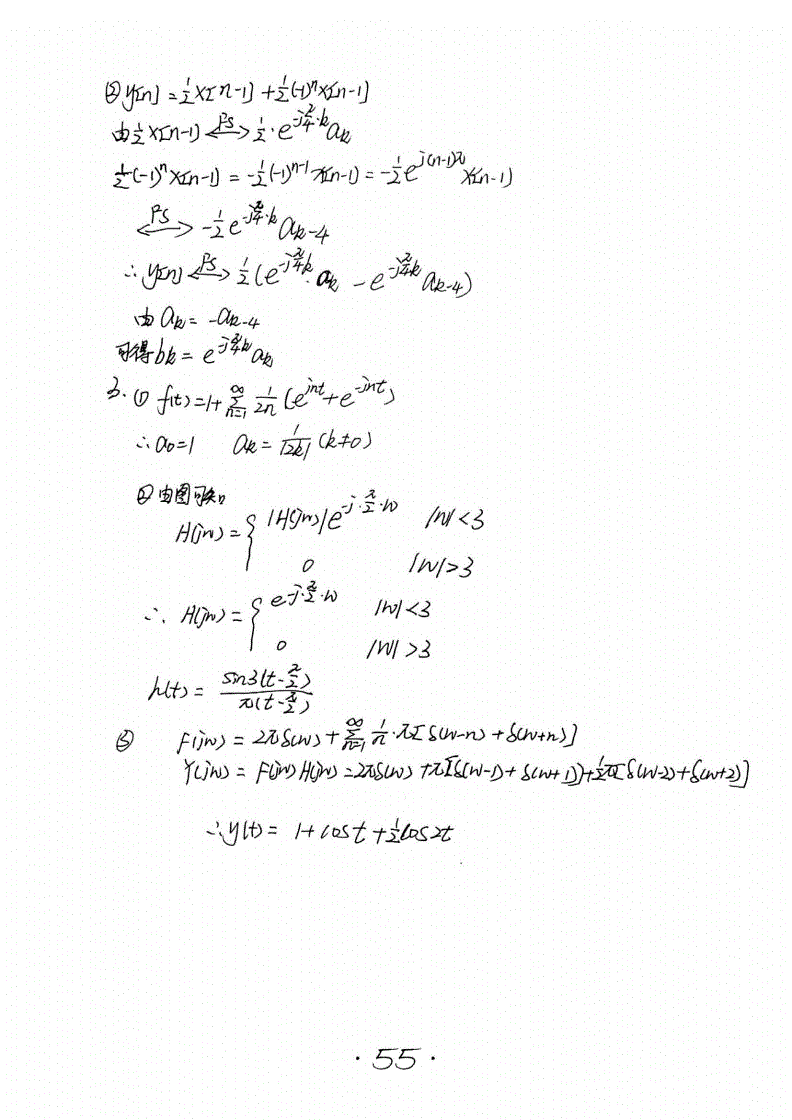 ② y[n] = 1/2 x[n-1] + 1/2 (-1)^n x[n-1]
由 1/2 x[n-1] <-FS-> 1/2 · e^{-j π/4 · k} a_k
1/2 (-1)^n x[n-1] = -1/2 (-1)^{n-1} x[n-1] = -1/2 e^{j(n-1)π} x[n-1]
<-FS-> -1/2 e^{-j π/4 · k} a_{k-4}
∴ y[n] <-FS-> 1/2 (e^{-j π/4 k} · a_k - e^{-j π/4 k} a_{k-4})
由 a_k = -a_{k-4}
可得 b_k = e^{-j π/4 k} a_k
3. ① f(t) = 1 + ∑_{n=1}^{∞} 1/2n (e^{jnt} + e^{-jnt})
∴ a_0 = 1 a_k = 1/|2k| (k≠0)
② 由图可知:
H(jw) = { |H(jw)| e^{-j · π/2 · w} |w| < 3
0 |w| > 3
∴ H(jw) = { e^{-j · π/2 · w} |w| < 3
0 |w| > 3
h(t) = sin3(t-π/2) / π(t-π/2)
③ F(jw) = 2πδ(w) + ∑_{n=1}^{∞} 1/n · π[δ(w-n) + δ(w+n)]
Y(jw) = F(jw) H(jw) = 2πδ(w) + π[δ(w-1) + δ(w+1)] + 1/2 π[δ(w-2) + δ(w+2)]
∴ y(t) = 1 + cost + 1/2 cos2t
· 55 ·